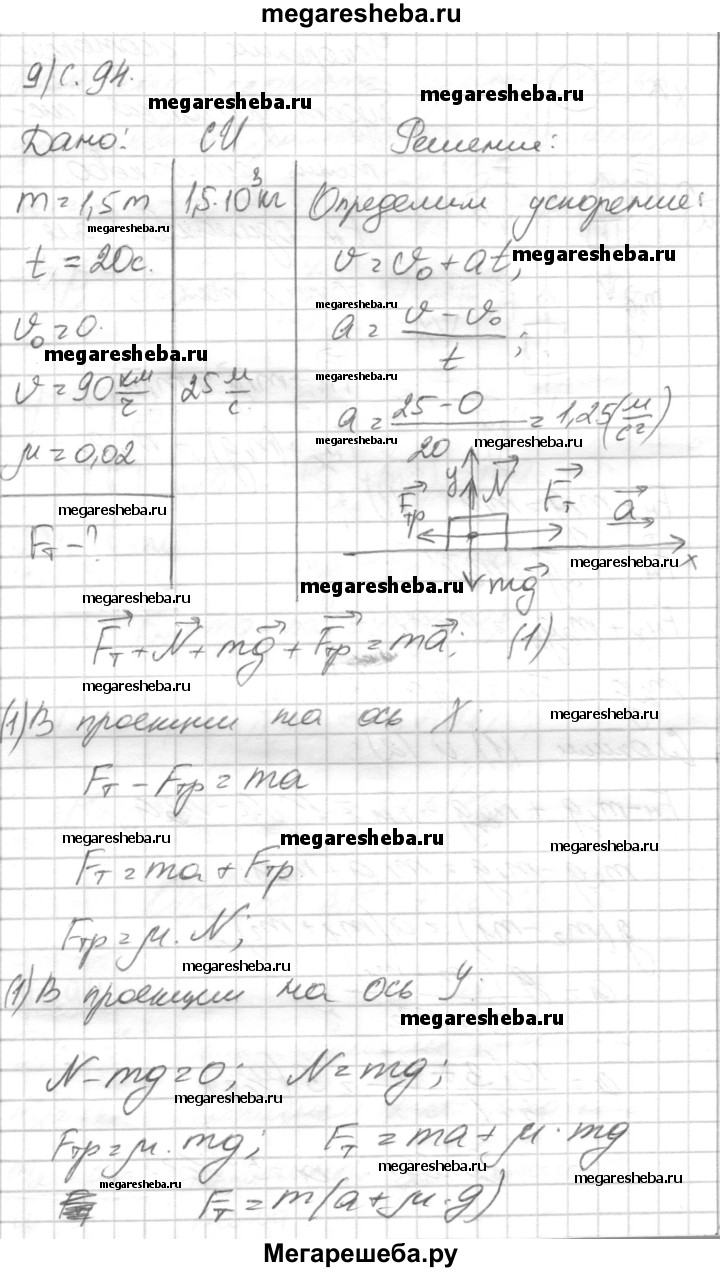 megaresheba.ru
9) с. 94.
megaresheba.ru megaresheba.ru
Дано: СИ Решение:
m = 1,5 т 1,5·10³ кг Определим ускорение:
megaresheba.ru
t = 20 с. υ = υ₀ + at, megaresheba.ru
υ₀ = 0. a = (υ – υ₀)/t ;
megaresheba.ru megaresheba.ru
υ = 90 км/ч 25 м/с. megaresheba.ru
a = (25 – 0)/20 = 1,25 (м/с²)
μ = 0,02 megaresheba.ru megaresheba.ru
y N⃗ F⃗тр F⃗т a⃗
megaresheba.ru
Fт – ? x
megaresheba.ru megaresheba.ru megaresheba.ru
mg⃗
F⃗т + N⃗ + mg⃗ + F⃗тр = ma⃗; (1)
megaresheba.ru
(1) В проекции на ось X: megaresheba.ru
Fт – Fтр = ma
megaresheba.ru megaresheba.ru megaresheba.ru
Fт = ma + Fтр.
Fтр = μ · N;
megaresheba.ru
(1) В проекции на ось y:
megaresheba.ru
N – mg = 0; N = mg;
megaresheba.ru
Fтр = μ · mg; Fт = ma + μ · mg
megaresheba.ru megaresheba.ru megaresheba.ru
Fт = m(a + μ · g)
Мегарешеба.ру